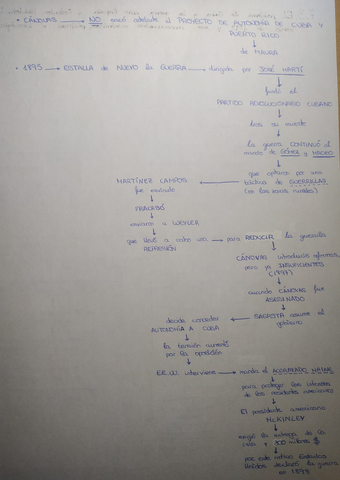 • CÁNOVAS → NO sacó adelante el PROYECTO DE AUTONOMÍA DE CUBA Y
PUERTO RICO
↓
de MAURA
• 1895 → ESTALLA DE NUEVO la GUERRA → dirigida por JOSÉ MARTÍ
↓
fundó el
PARTIDO REVOLUCIONARIO CUBANO
↓
tras su muerte
↓
la guerra CONTINUÓ al
mando de GÓMEZ y MACEO
↓
que optaron por una
táctica de GUERRILLAS
(en las zonas rurales)
MARTÍNEZ CAMPOS ←
fue enviado
↓
FRACASÓ
↓
enviaron a WEYLER
↓
que llevó a cabo una → para REDUCIR la guerrilla
REPRESIÓN
↓
CÁNOVAS introdujo reformas
pero ya INSUFICIENTES
(1897)
↓
cuando CÁNOVAS fue
ASESINADO
↓
SAGASTA asume el
gobierno
decide conceder ←
AUTONOMÍA A CUBA
↓
la tensión aumentó
por la oposición
↓
EE.UU. interviene → manda el ACORAZADO MAINE
↓
para proteger los intereses
de los residentes americanos
↓
El presidente americano
McKINLEY
↓
exigió la entrega de la
isla x 300 millones $
↓
por este motivo Estados
Unidos declaró la guerra
en 1898